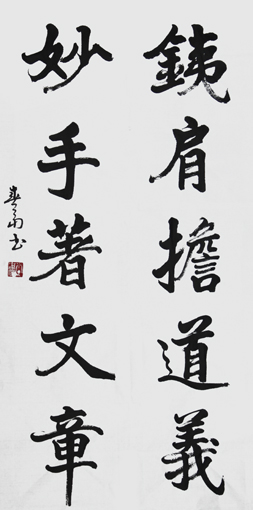 銕肩擔道義
妙手著文章